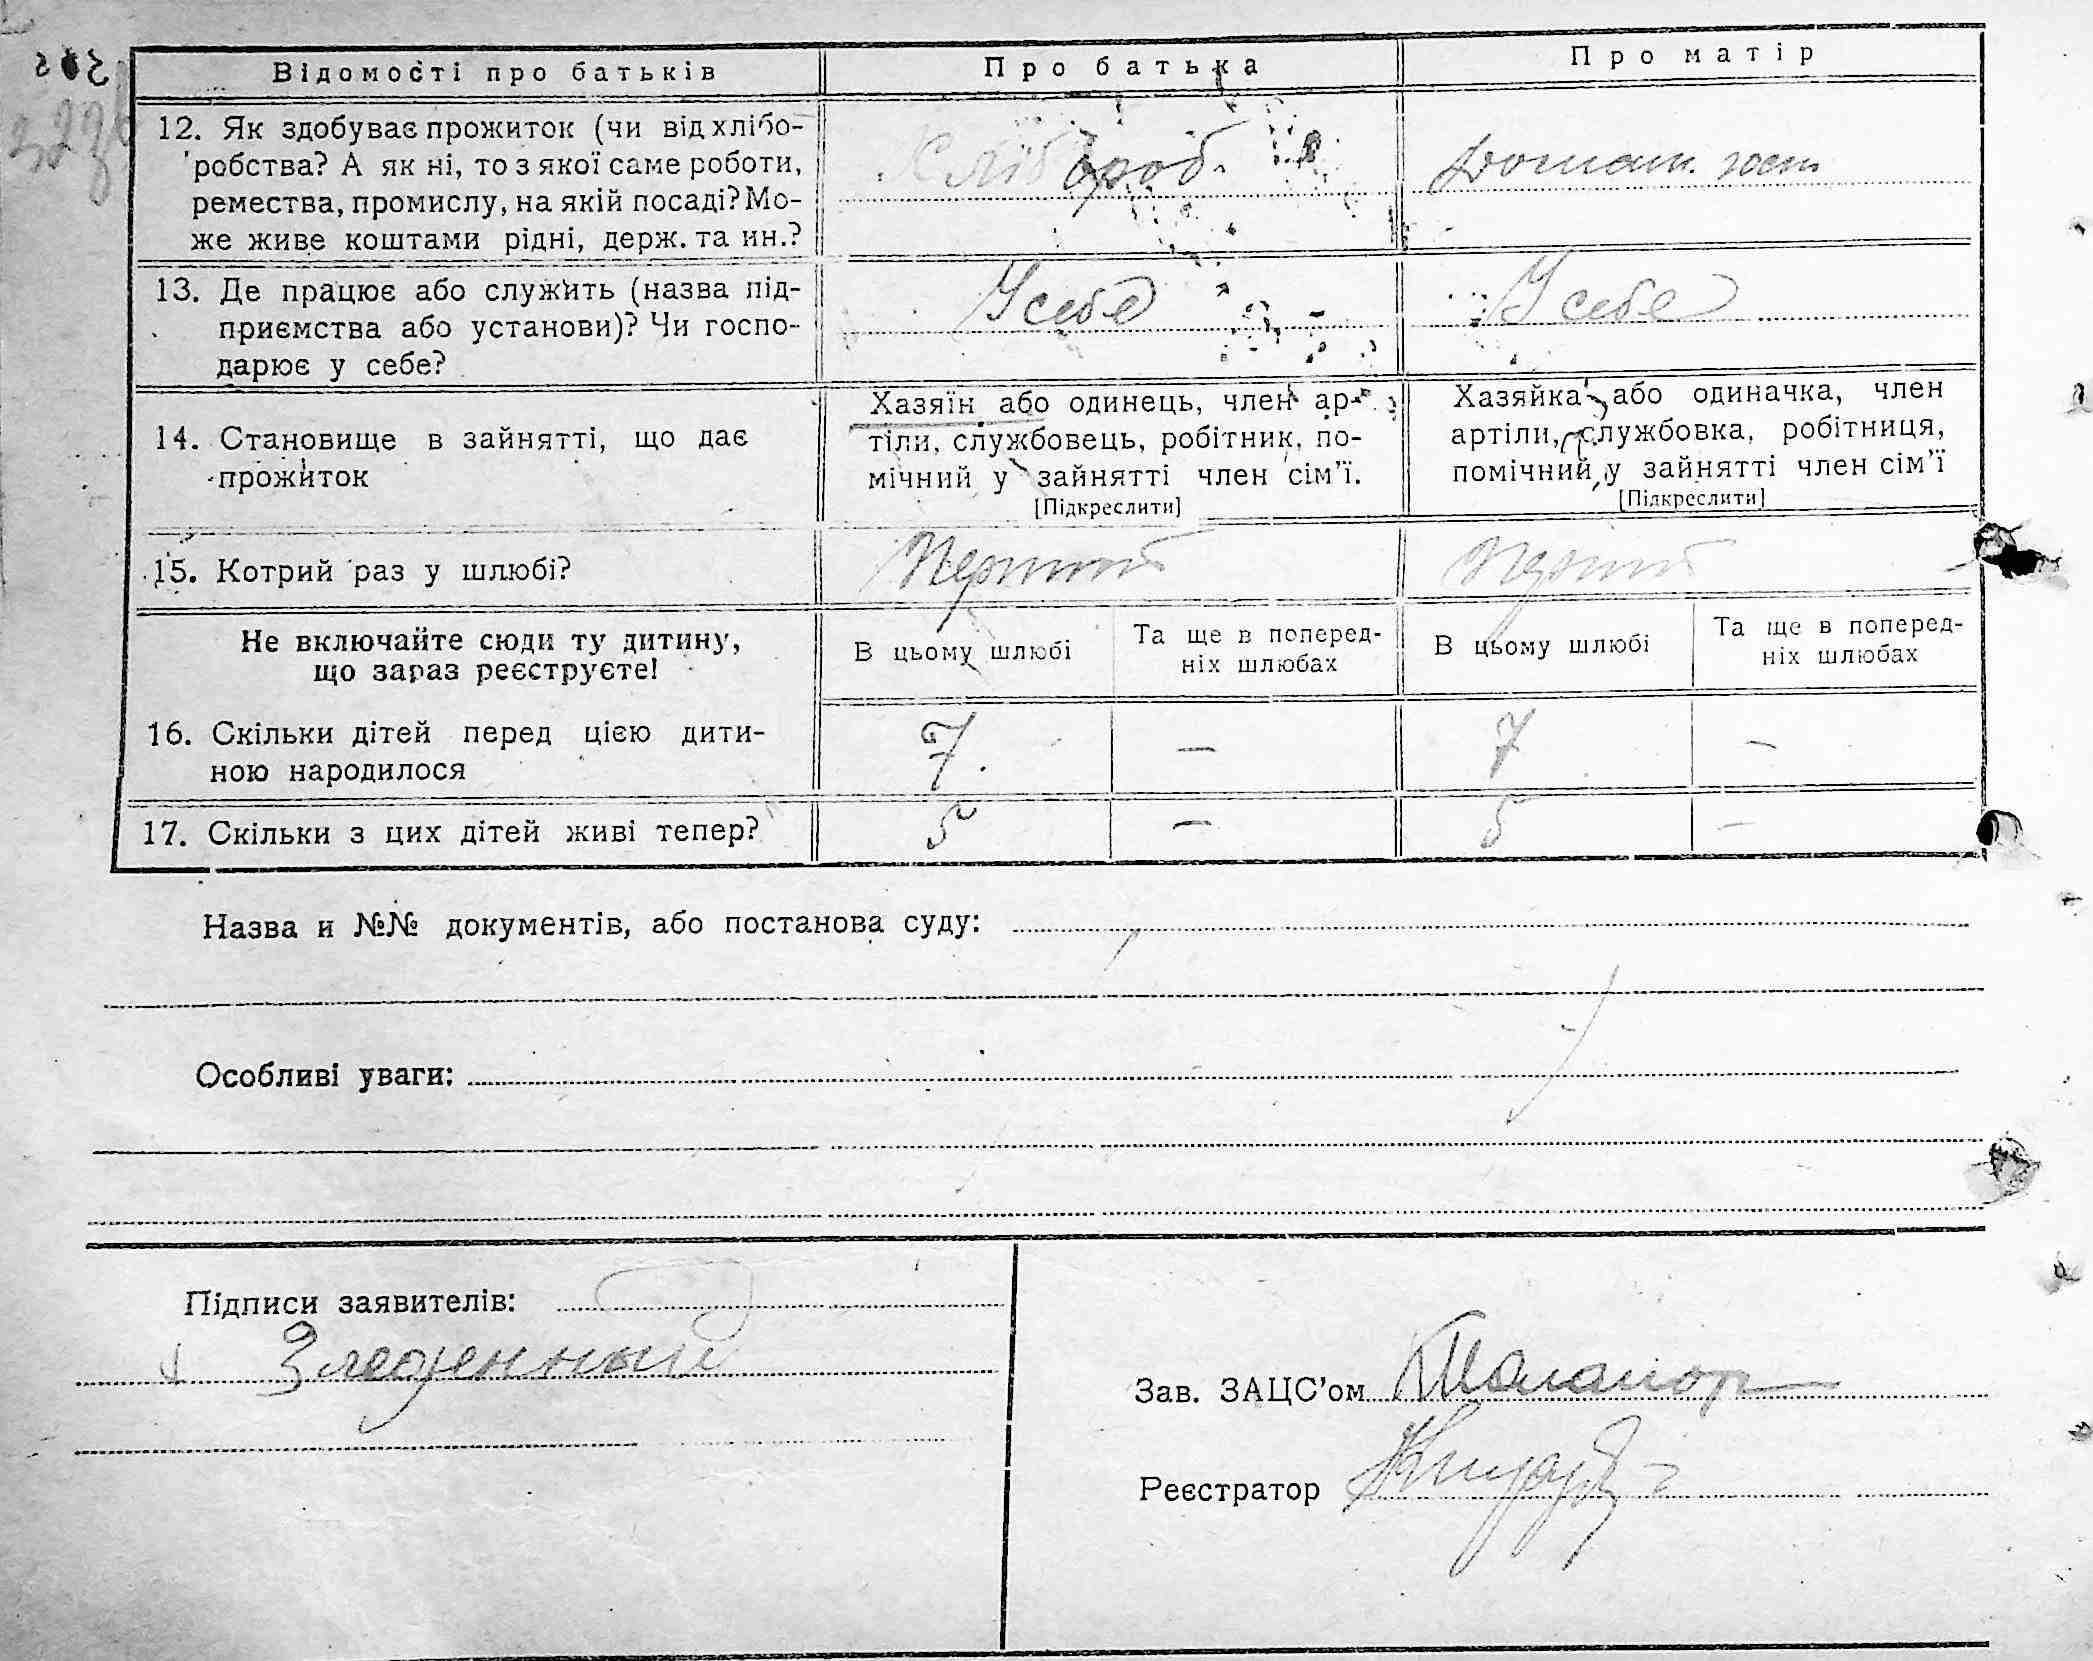 Відомості про батьків
Про батька
Про матір
12. Як здобуває прожиток (чи від хлібо-
робства? А як ні, то з якої саме роботи,
ремества, промислу, на якій посаді? Мо-
же живе коштами рідні, держ. та ин.?
Хлібороб.
Домаш. госп
13. Де працює або служить (назва під-
приємства або установи)? Чи госпо-
дарює у себе?
У себе
У себе
14. Становище в зайнятті, що дає
прожиток
Хазяїн або одинець, член ар-
тіли, службовець, робітник, по-
мічний у зайнятті член сім'ї.
[Підкреслити]
Хазяйка або одиначка, член
артіли, службовка, робітниця,
помічний у зайнятті член сім'ї
[Підкреслити]
15. Котрий раз у шлюбі?
Перший
Перший
Не включайте сюди ту дитину,
що зараз реєструєте!
В цьому шлюбі
Та ще в поперед-
ніх шлюбах
В цьому шлюбі
Та ще в поперед-
ніх шлюбах
16. Скільки дітей перед цією дити-
ною народилося
7. — 7 —
17. Скільки з цих дітей живі тепер?
5 — 5 —
Назва и №№ документів, або постанова суду:
Особливі уваги:
Підписи заявителів:
Зав. ЗАЦС'ом
Реєстратор